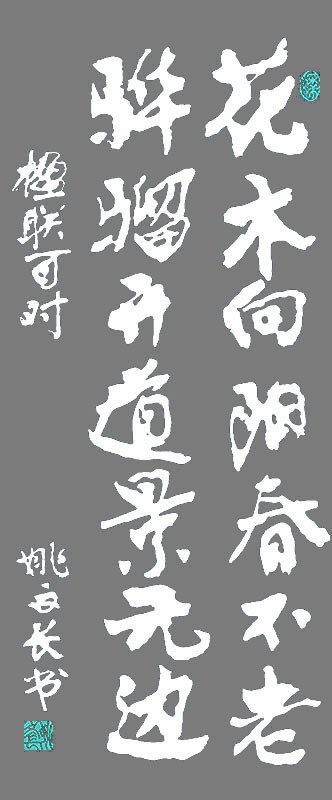 花木向阳春不老
骅骝开道景无边
楹联
姚长书